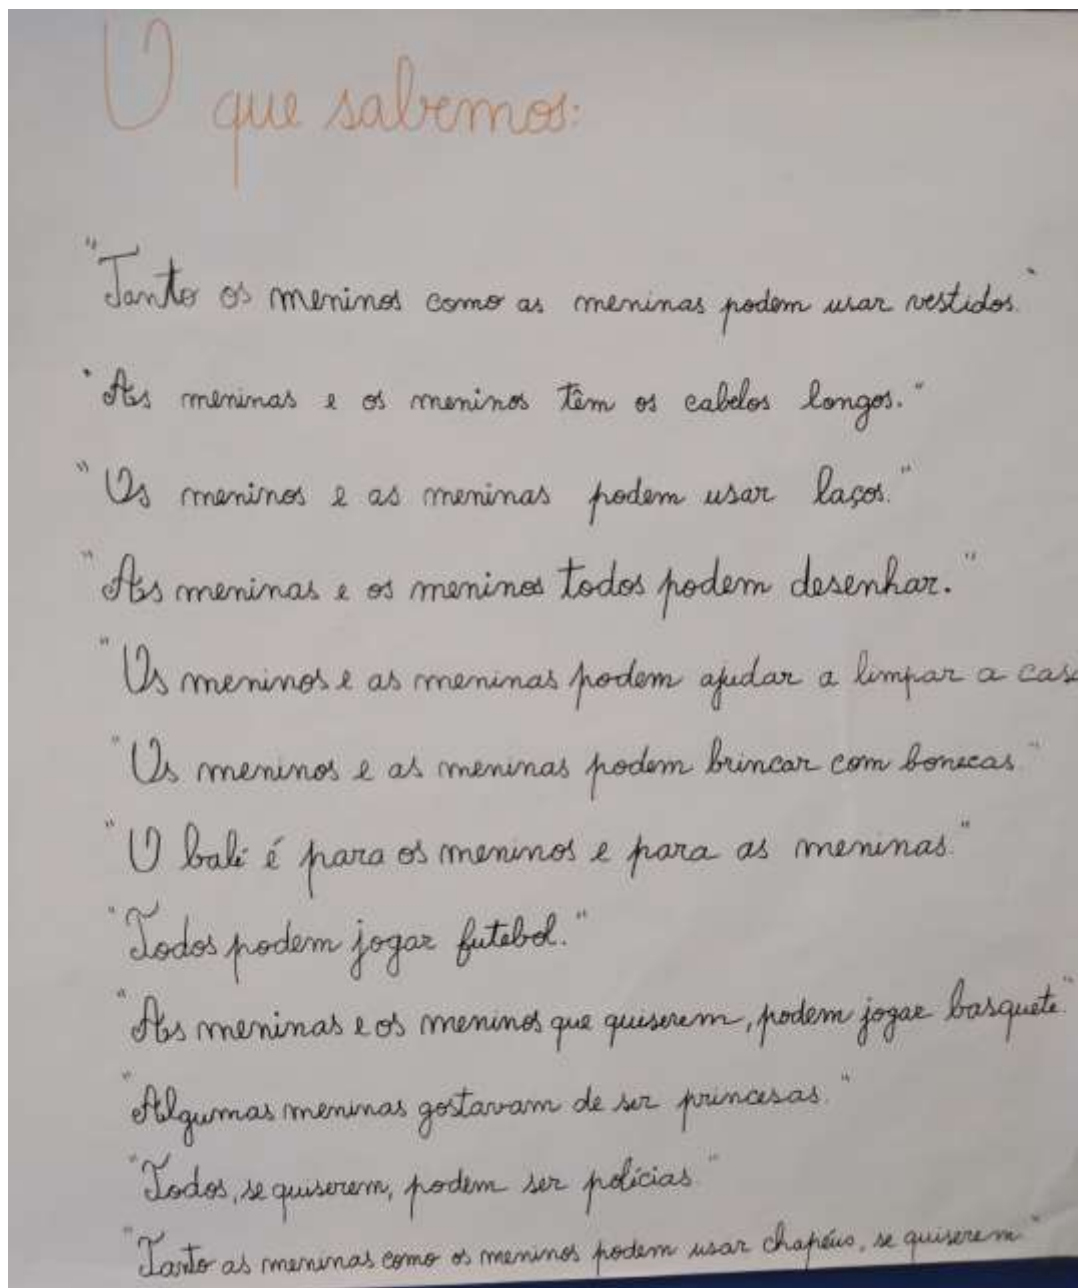 O que sabemos:
"Tanto os meninos como as meninas podem usar vestidos."
"As meninas e os meninos têm os cabelos longos."
"Os meninos e as meninas podem usar laços."
"As meninas e os meninos todos podem desenhar."
"Os meninos e as meninas podem ajudar a limpar a casa
"Os meninos e as meninas podem brincar com bonecas"
"O balé é para os meninos e para as meninas."
"Todos podem jogar futebol."
"As meninas e os meninos que quiserem, podem jogar basquete."
"Algumas meninas gostavam de ser princesas."
"Todos, se quiserem, podem ser polícias"
"Tanto as meninas como os meninos podem usar chapéus, se quiserem"